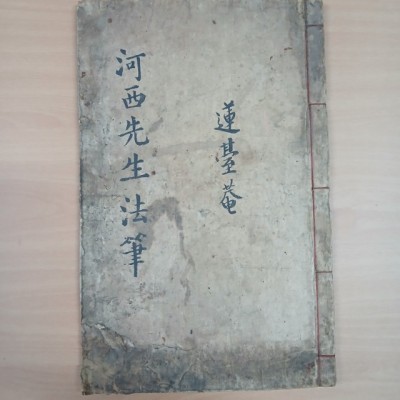 蓮臺菴
河西先生法筆